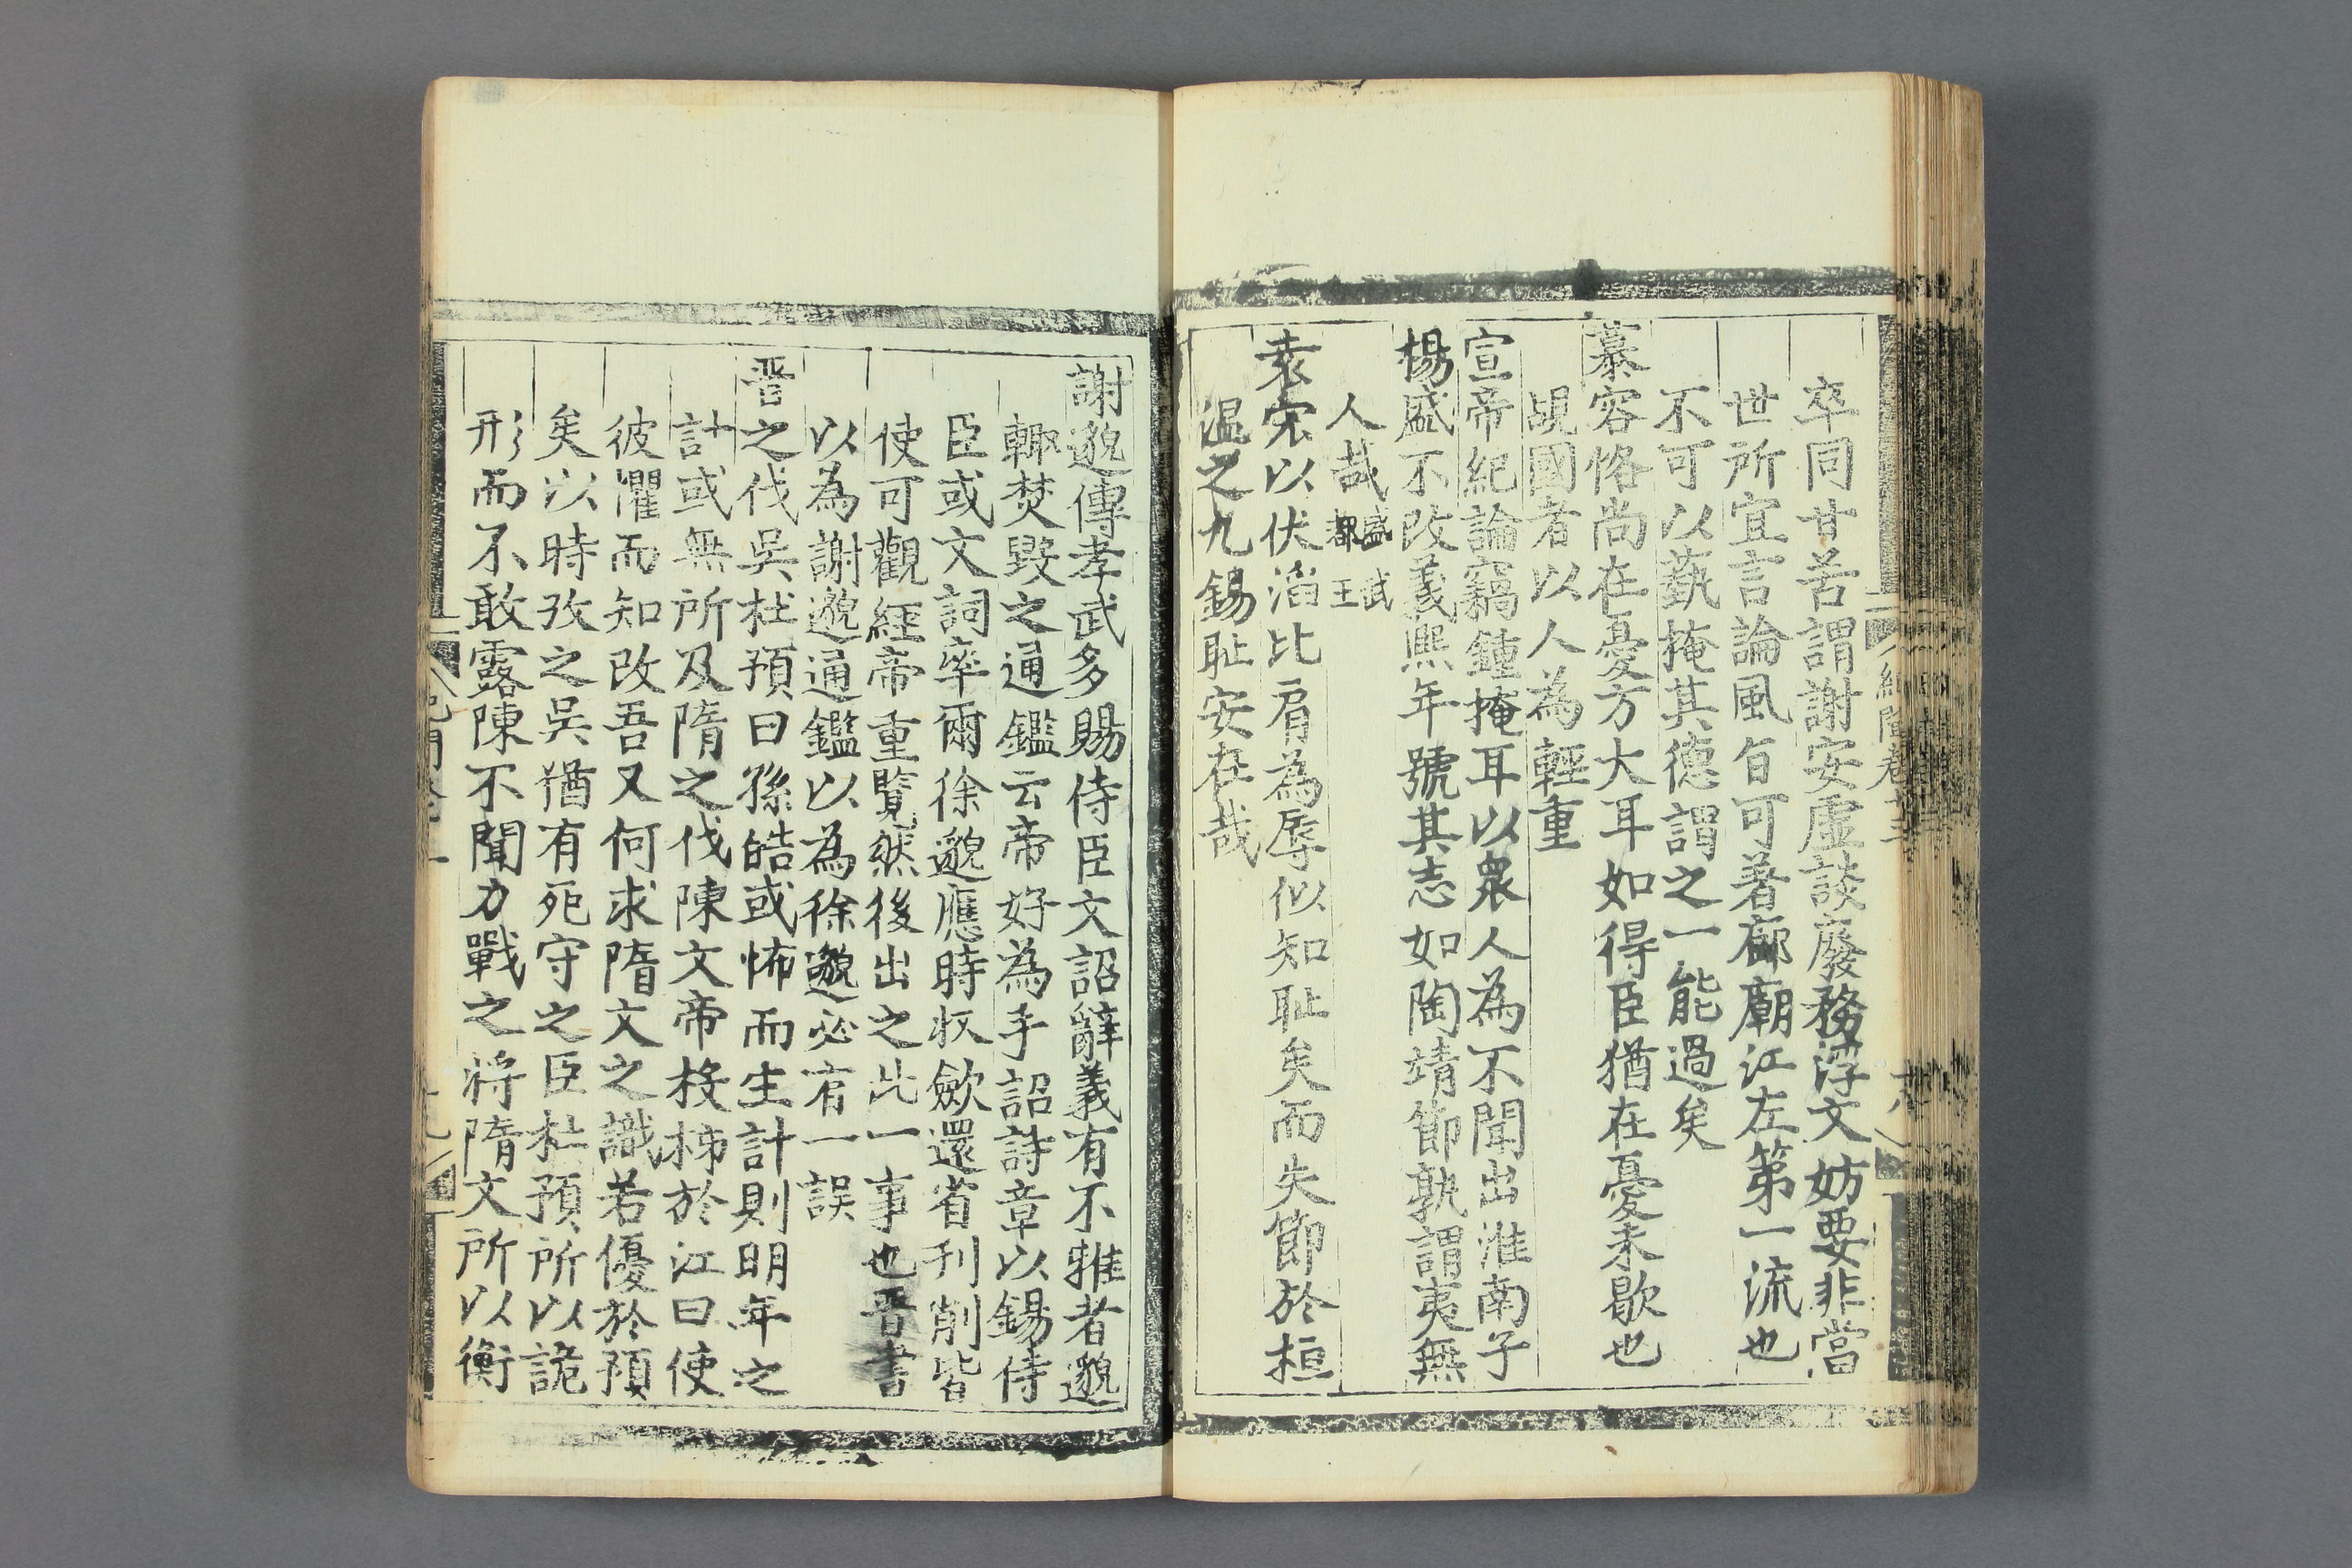 卒同甘苦謂謝安虛談廢務浮文妨要非當
世所宜言論風旨可著廊廟江左第一流也
不可以蓺掩其德謂之一能過矣
慕容恪尚在憂方大耳如得臣猶在憂未歇也
覘國者以人為輕重
宣帝紀論竊鍾掩耳以衆人為不聞出淮南子
楊盛不改義熙年號其志如陶靖節孰謂夷無
人哉盛武都王
袁宏以伏滔比肩為辱似知恥矣而失節於桓
溫之九錫恥安在哉
謝邈傳孝武多賜侍臣文詔辭義有不雅者邈
輙焚毀之通鑑云帝好為手詔詩章以錫侍
臣或文詞率爾徐邈應時收歛還省刋削皆
使可觀經帝重覽然後出之此一事也晋書
以為謝邈通鑑以為徐邈必有一誤
晋之伐吳杜預曰孫皓或怖而生計則明年之
計或無所及隋之伐陳文帝投柹於江曰使
彼懼而知改吾又何求隋文之識若優於預
矣以時攷之吳猶有死守之臣杜預所以詭
形而不敢露陳不聞力戰之將隋文所以衡